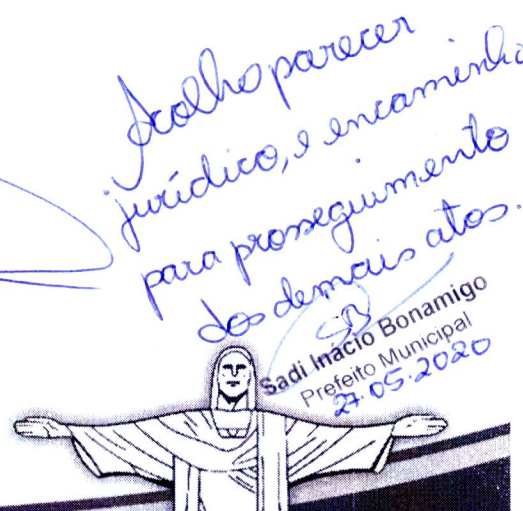 Acolho parecer
jurídico, e encaminho
para prosseguimento
dos demais atos.
SB
Sadi Inácio Bonamigo
Prefeito Municipal
27.05.2020